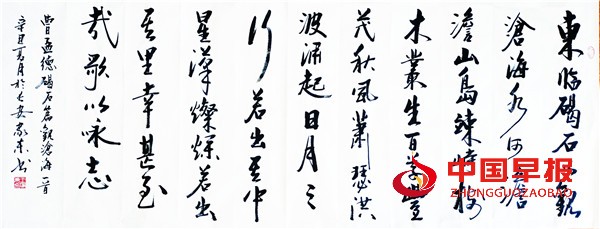 東臨碣石以觀
滄海水何澹
澹山島竦峙樹
木叢生百草豐
茂秋風蕭瑟洪
波涌起日月之
行若出其中
星漢燦爛若出
其里幸甚至
哉歌以咏志
曹孟德碣石篇觀滄海一首
夏月於長安
中国早报
ZHONGGUOZAOBAO